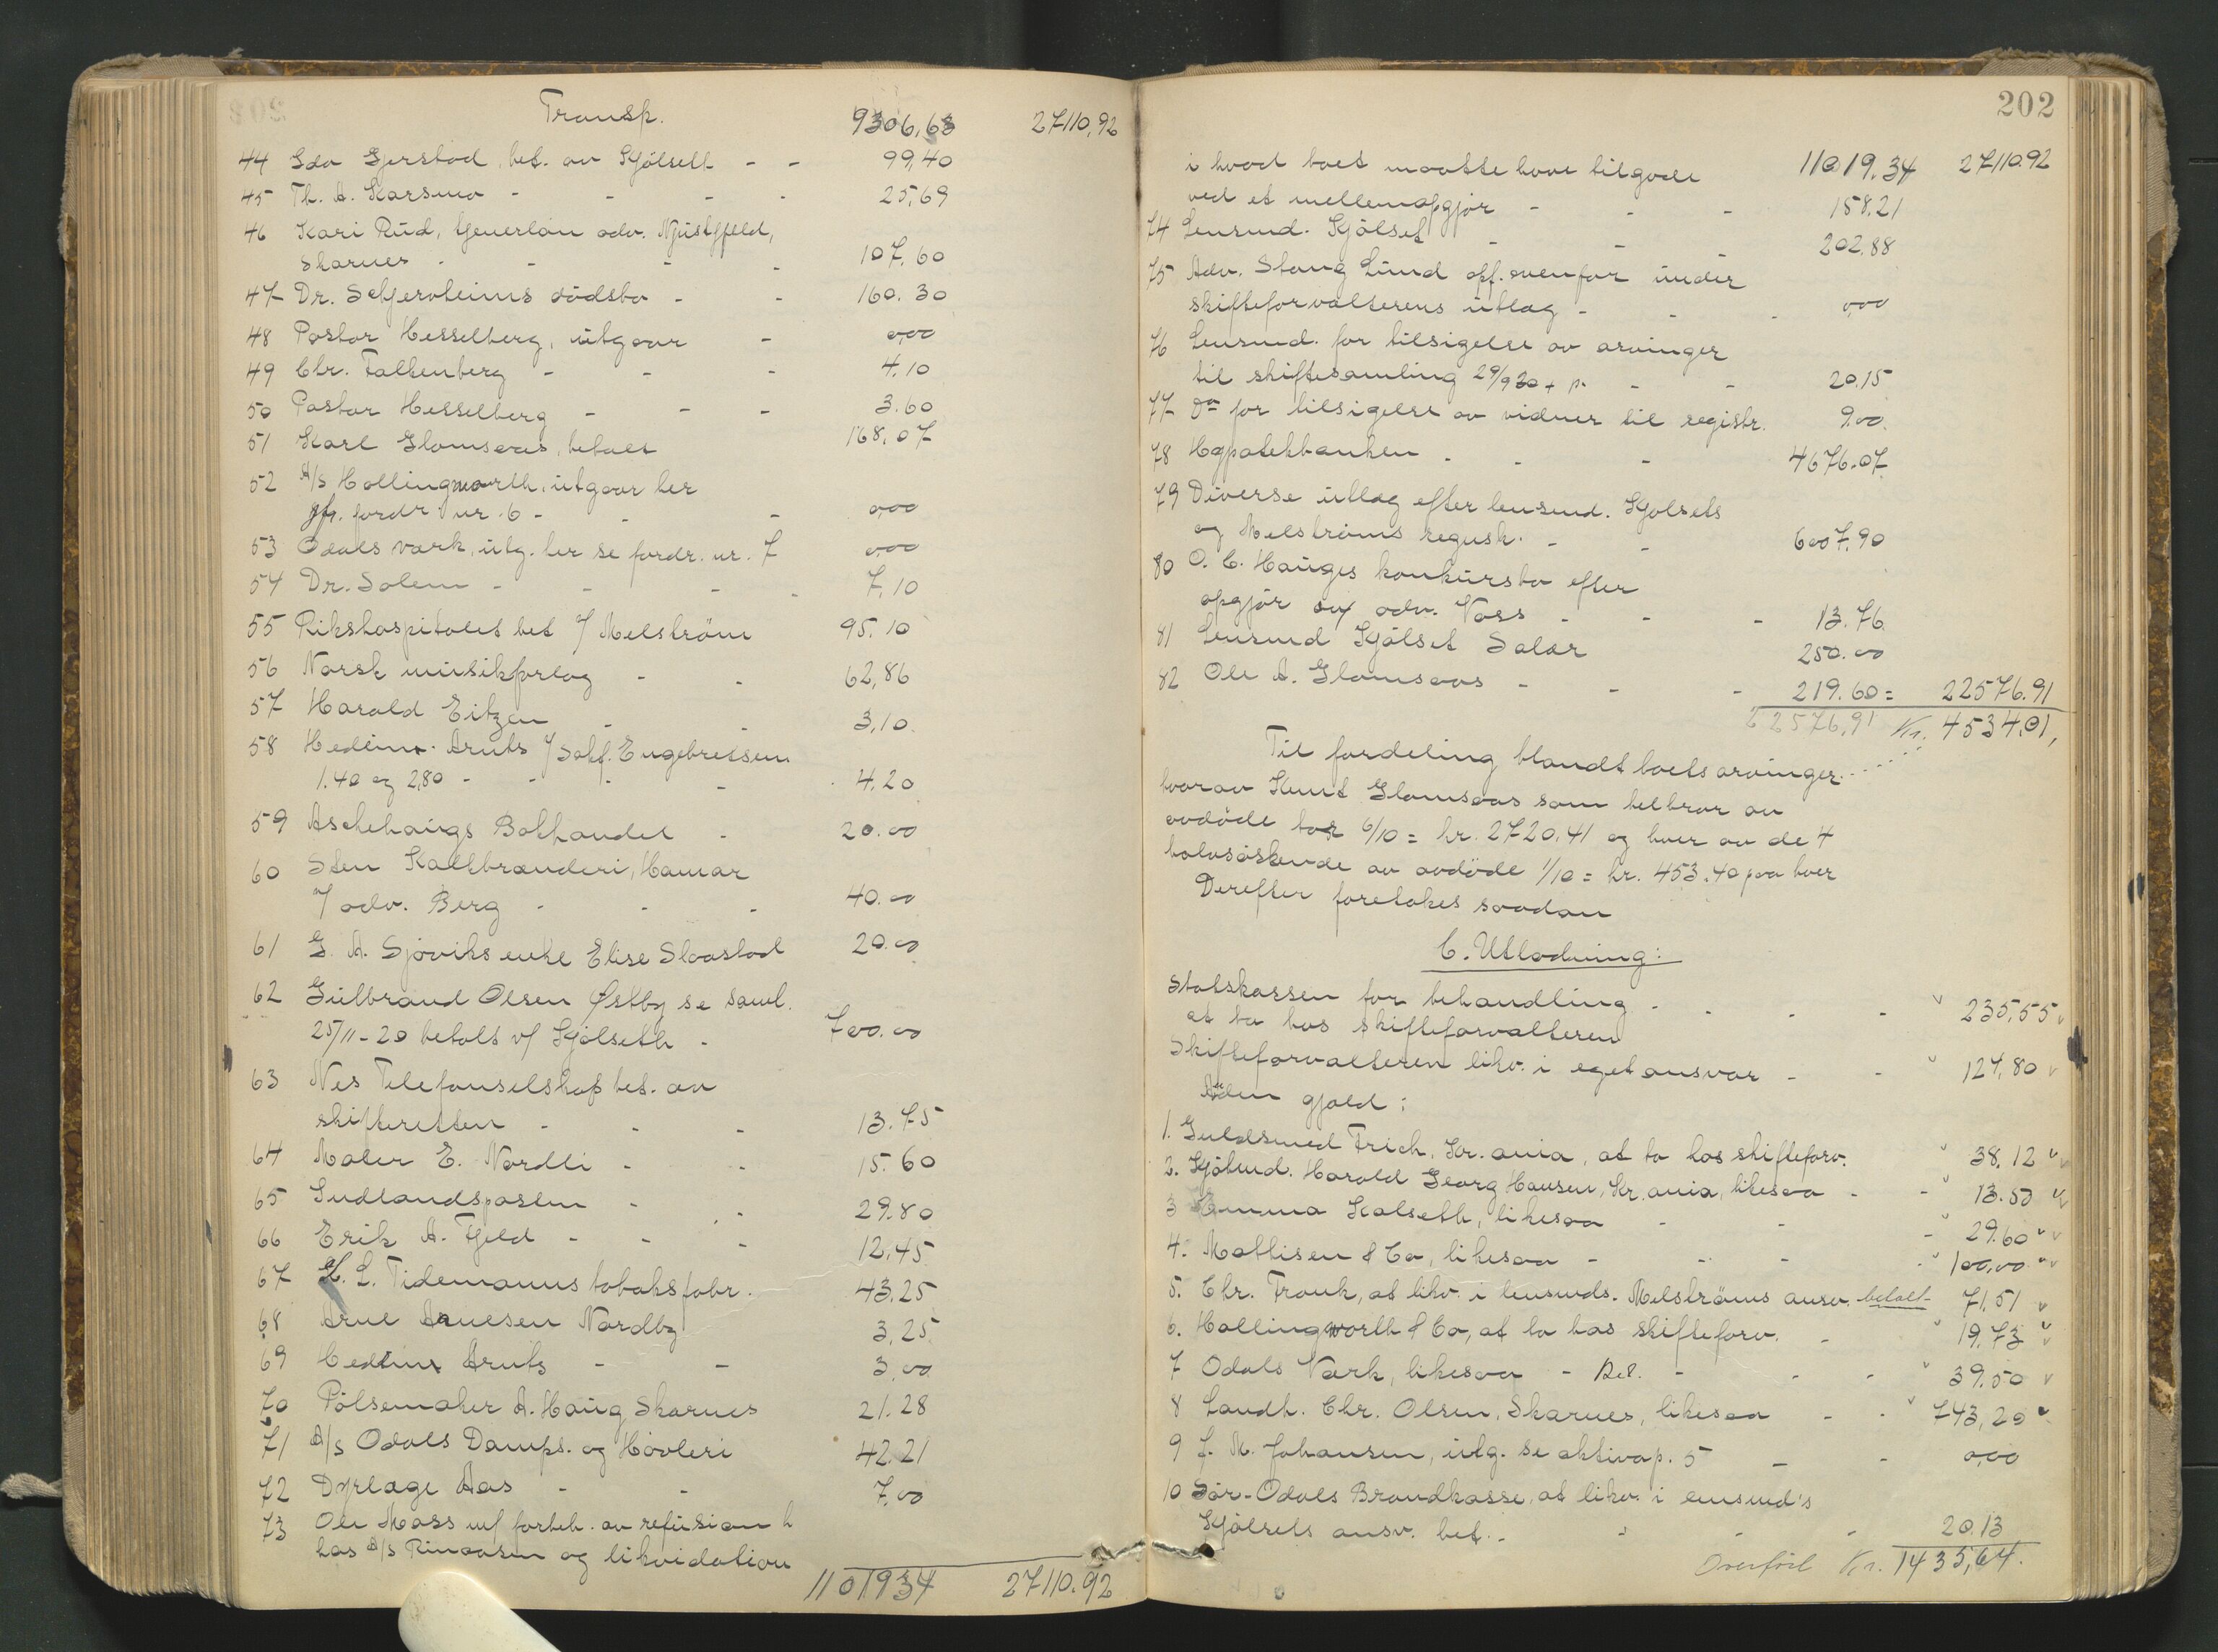 Transp. 9306,63 27110,92
44 Ida Gjerstad, bet. av Kjölsett - - 99,40
45 Th. A. Karsmo - - - - 25,69
46 Kari Rud, Hjeuerlön adv. Njustfjeld,
Skarnes - - - - 107.60
47 Dr. Scheroheims dödsbo - - 160.30
48 Pastor Hesselberg, utgaar - 0,00
49 Chr. Falkenberg - - - 4.10
50 Pastor Hesselberg - - - 3.60
51 Karl Glomsaas, betalt 168.07
52 A/s Hollingworth, utgaar her
jfr. fordr. nr. 6 - - - 0,00
53 Odals værk, utg. her se fordr. nr. 7 0,00
54 Dr. Solem - - - - 7,10
55 Rikshospitalet bet v/ Melström 95.10
56 Norsk musikforlag - - 62,86
57 Harald Eitzen - - 3,10.
58 Hedmr. Aruts v/ Sakf. Engebretsen
1.40 og 2,80 - - - - 4.20
59 Aschehaugs Bokhandel - 20.00
60 Sten Kalkbrænderi, Hamar
v/ adv. Berg - - - 40.00
61 G. A. Sjöviks enke Elise Slaastad 20.00
62 Gulbrand Olsen Østby se saml.
25/11-20 betalt v/ Kjölseth - 700.00
63 Nes Telefonselskap bet. av
skifteretten - - - 13.75
64 Maler E. Nordli - - 15.60
65 Indlandsposten - - 29.80
66 Erik A. Fjeld - - - 12.45
67 H. L. Tidemanns tobaksfabr. 43.25
68 Arne Arnesen Nordby 3,25
69 Hedmr Aruts - - 3,00
70 Pölsemaker A. Haug Skarnes 21.28
71 A/s Odals Damps. og Hövleri 42.21
72 Dyrlæge Aas - - 7,00
73 Ole Moss mf forbeh. av refusion h
hos A/s Rinaasen og likvidation
11019.34 27110.92
202
i hvad boet maatte have tilgode 11019.34 27110.92
ved et mellemopgjør - - - 158.21
74 Lensmd. Kjölset - - - 202.88
75 Adv. Stang Lund opf. ovenfor under
skifteforvalterens utlæg - - - 0,00
76 Lensmd. for tilsigelse av arvinger
til skiftesamling 29/9 20 + p. - - 20.15
77 Do for tilsigelse av vidner til registr. 9.00.
78 Hypotekbanken - - - 4676.07
79 Diverse utlæg efter lensmd. Kjölsets
og Melströms regnsk. - - 6007.90
80 O. C. Hauges konkursbo efter
opgjör av adv. Voss - - - 13.76
81 Lensmd Kjölset Salær 250.00
82 Ole A. Glomsaas - - - 219.60 = 22576.91
22576,91 Kr. 4534.01,
Til fordeling blandt boets arvinger.....
hvorav Knut Glomsaas som helbror av
avdöde tar 6/10 = kr. 2720.41 og hver av de 4
halvsöskende av avdöde 1/10 = kr. 453.40 paa hver
Derefter foretokes saadan
C. Utlodning:
Statskassen for behandling - - - " 235,55 v
at ta hos skifteforvalteren
Skifteforvalteren likv. i eget ansvar - - " 124,80 v
Uden gjæld:
1. Guldsmed Frich, Kr.ania, at ta hos skifteforv. " 38.12 " v
2. Kjöbmd. Harald Georg Hansen, Kr.ania, likesaa - - " 13.50 " v
3 Emma Kalseth, likesaa - - - " 29.60 " v
4. Mathisen & Co, likesaa - - - " 100,00 " v
5. Chr. Frank, at likv. i lensmds. Melströms ansv. betalt 71,51 v
6. Hollingworth & Co, at ta hos skifteforv. - " 19.73 " v
7 Odals Værk, likesaa - Bet. - - - " 39.50 v
8 Landh. Chr. Olsen, Skarnes, likesaa - - " 743,20 "
9 J. M. Johansen, utg. se aktivap. 5 - - 0,00
10 Sör-Odals Brandkasse, at likv. i lensmd's
Kjölsets ansv. bet. - " - - 20.13
Overfört Kr. 1435,64.